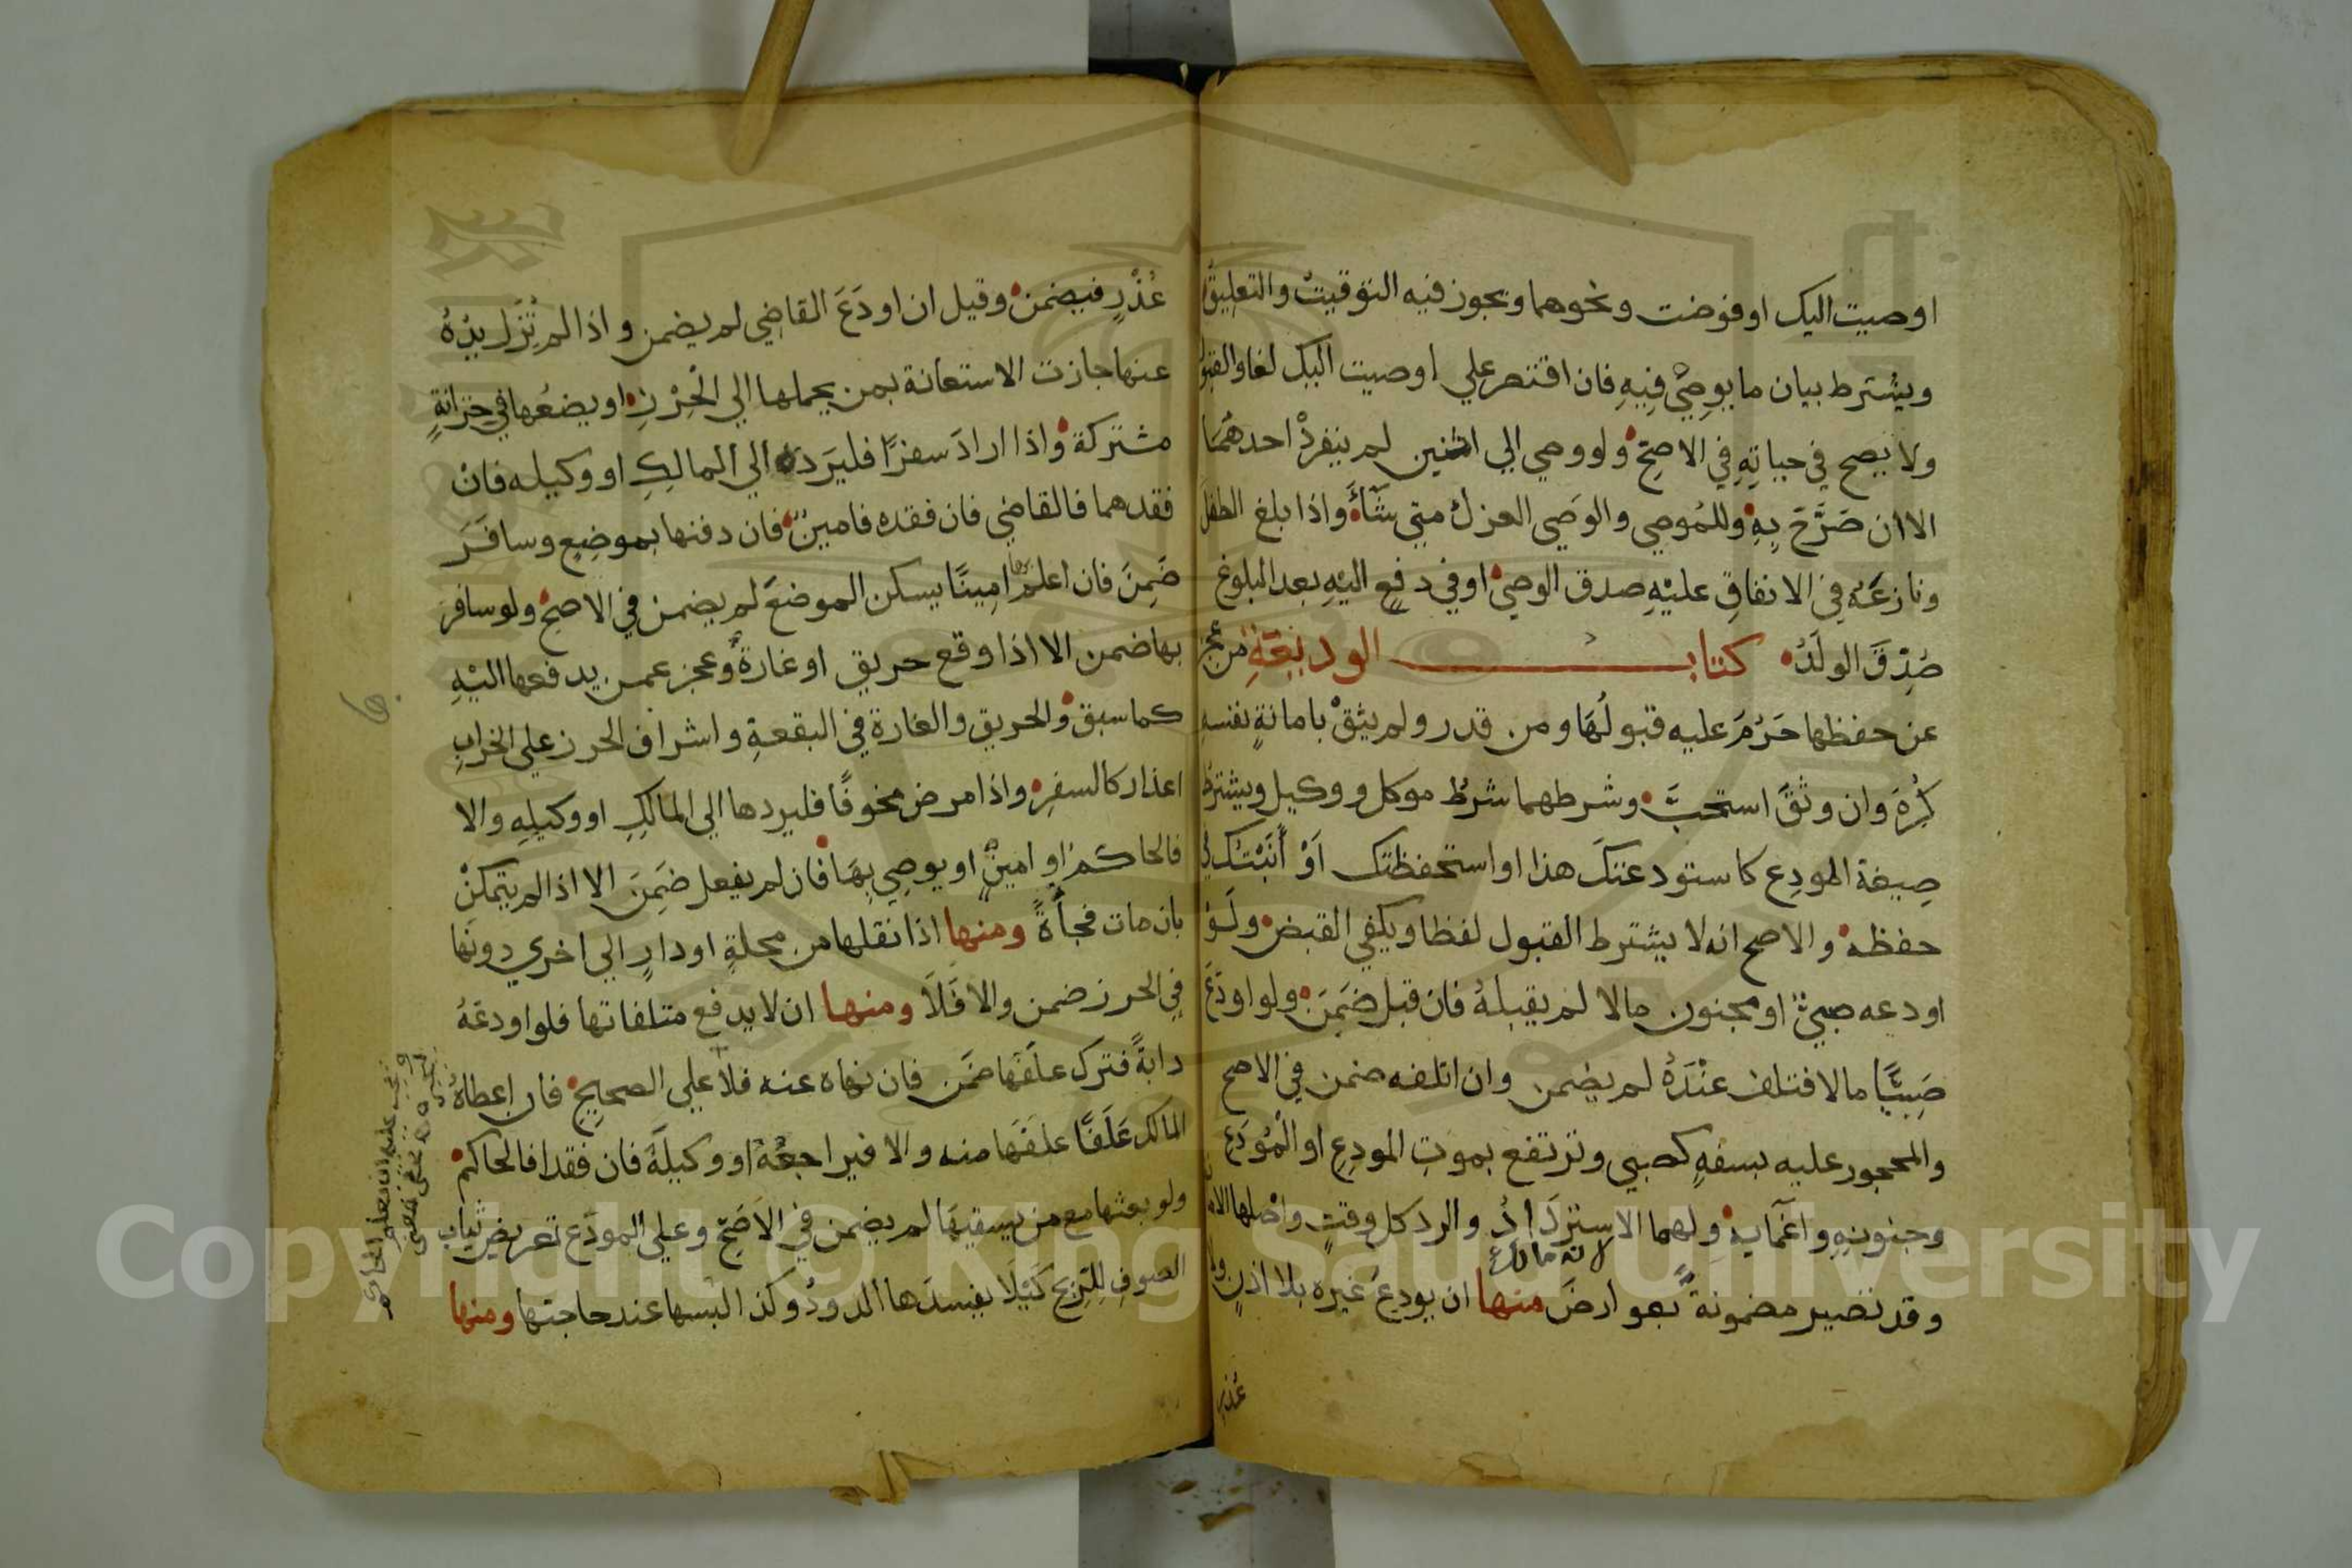 اوصيت اليك او فوضت ونحوهما ويجوز فيه التوقيت والتعليق
ويشترط بيان ما يوصي فيه فان اقتصر علي اوصيت اليك لغا والقبول
ولا يصح في حياته في الاصح ولو وصي الي اثنين لم ينفرد احدهما
الا ان صَرَّحَ به وللموصي والوصي العزل متي شاء واذا بلغ الطفل
ونازعه في الانفاق عليه صدق الوصي او في دفع اليه بعد البلوغ
صُدِّقَ الولدُ كتاب الوديعة من عجز
عن حفظها حَرُمَ عليه قبولها ومن قدر ولم يثق بامانة نفسه
كُرِهَ وان وثق استحبَّ وشرطهما شرط موكل ووكيل ويشترط
صيغة المودع كاستودعتك هذا او استحفظتك اَوْ أَنَبْتُك في
حفظه والاصح انه لا يشترط القبول لفظا ويكفي القبض ولو
اودعه صبي او مجنون مالا لم يقبله فان قبل ضمن ولو اودع
صَبِيًّا مالا فتلف عنده لم يضمن وان اتلفه ضمن في الاصح
والمحجور عليه بسفه كصبي وترتفع بموت المودِع او المُودَع
وجنونه واغمايه ولهما الاسترداد والرد كل وقت واصلها الامانة
وقد تصير مضمونة بعوارض منها ان يودع غيره بلا اذن ولا
عذر
عُذْرٍ فيضمن وقيل ان اودَعَ القاضي لم يضمن واذا لم تُزَل يدُهُ
عنها جازت الاستعانة بمن يحملها الي الحِرْزِ او يضعُها في خزانةٍ
مشتركة واذا اراد سفرًا فليرده الي المالِكِ او وكيله فان
فقدهما فالقاضي فان فقده فامين فان دفنها بموضِعٍ وسافَرَ
ضَمِنَ فان اعلم بها امينًا يسكن الموضعَ لم يضمن في الاصح ولو سافر
بها ضمن الا اذا وقع حريق او غارة وعجز عمن يدفعها اليْهِ
كما سبق والحريق والغارة في البقعةِ واشراف الحرز علي الخرابِ
اعذار كالسفر واذا مرض مخوفًا فليردها الي المالكِ او وكيلِهِ والا
فالحاكم او امين او يوصِي بها فان لم يفعل ضَمِنَ الا اذا لم يتمكنْ
بان مات فجأةً ومنها اذا نقلها من محلةٍ او دارٍ الي اخري دونها
في الحرز ضمن والا فَلَا ومنها ان لا يدفع متلفاتها فلو اودعَهُ
دابةً فترك علفها ضَمن فان نهاه عنه فلا علي الصحيح فان اعطاهُ
المالك عَلَفًا علفَها منه والا فيراجعُهُ او وكيلَهُ فان فقدا فالحاكمُ
ولو بعثها مع من يسقيها لم يضمن في الاصَحِّ وعلي المودَع تعريض ثياب
الصوفِ للرّيح كَيْلَا يفسدَها الدودُ وكذا لبسها عند حاجتها ومنها